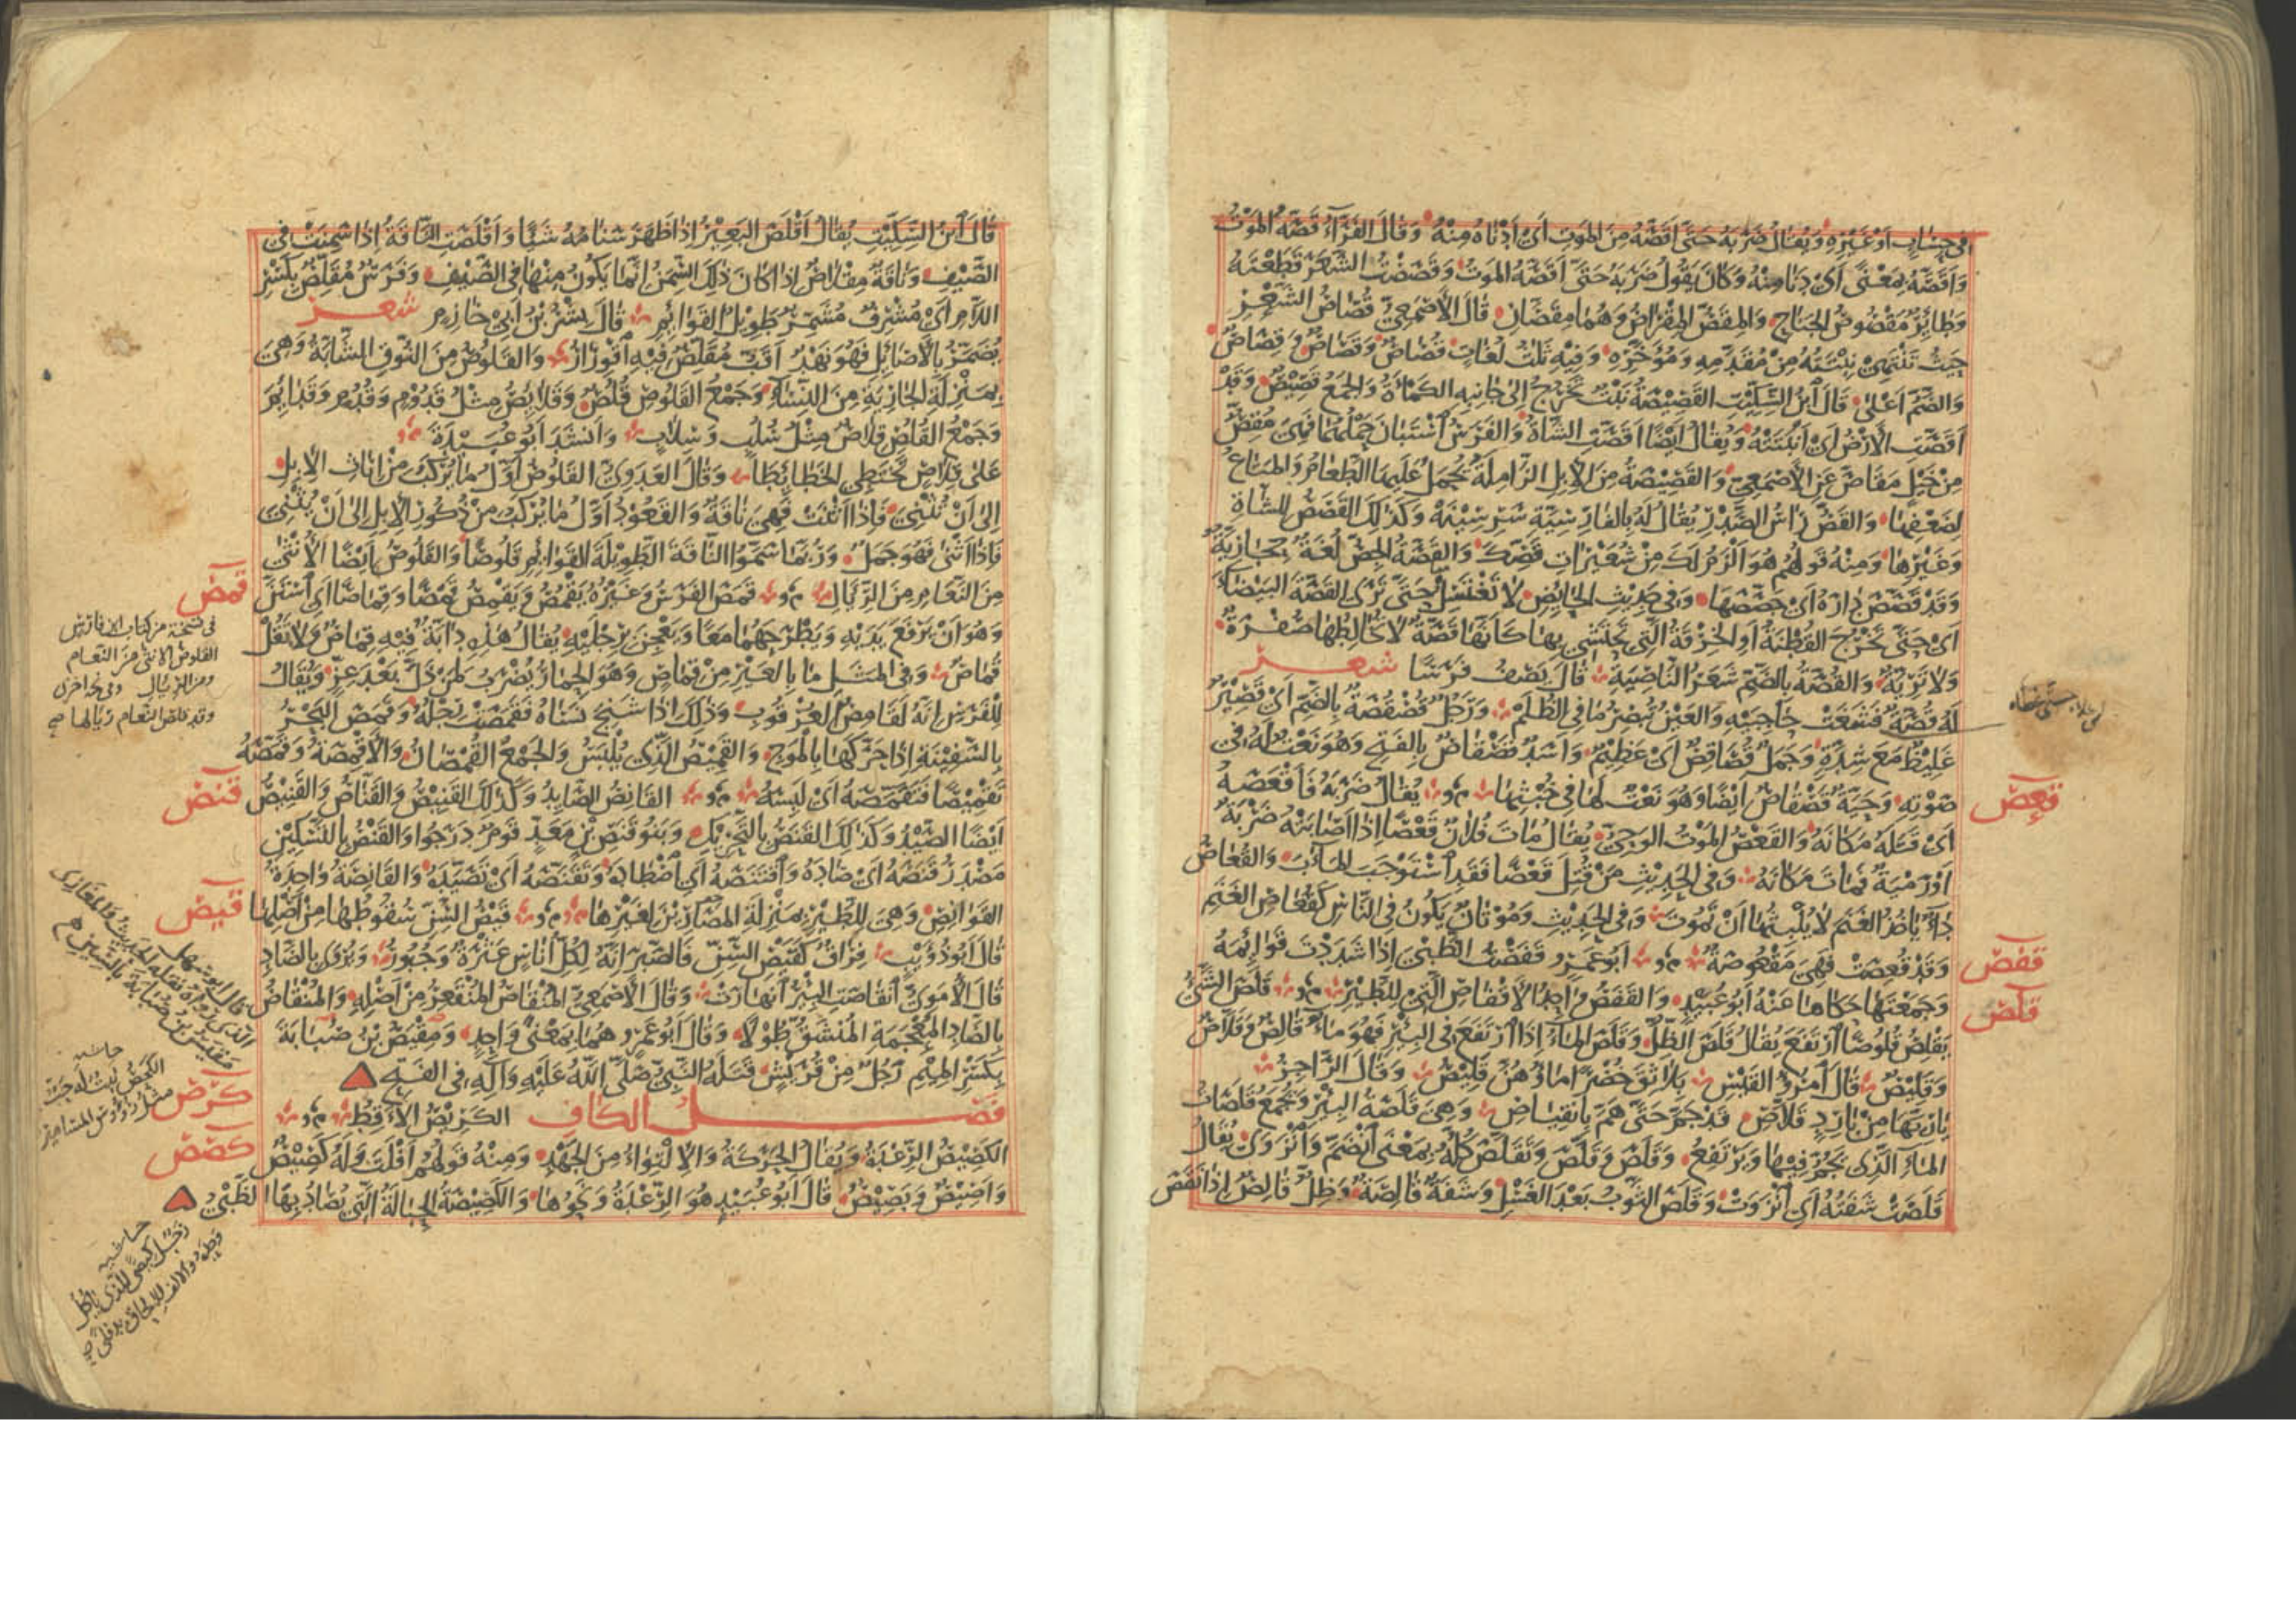 فى حِسَابٍ اَوْ غَيْرِهِ وَيُقَالُ ضَرَبَهُ حَتَّى اَقَصَّهُ مِنَ المَوْتِ اَىْ اَدْنَاهُ مِنْهُ وَقَالَ الفَرَّاءُ قَصَّهُ المَوْتُ
وَاَقَصَّهُ بِمَعْنًى اَىْ دَنَا مِنْهُ وَكَانَ يَقُولُ ضَرَبَهُ حَتَّى اَقَصَّهُ المَوْتُ وَقَصَصْتُ الشَّعَرَ قَطَعْتُهُ
وَطَائِرٌ مَقْصُوصُ الجَنَاحِ وَالمِقَصُّ المِقْرَاضُ وَهُمَا مِقَصَّانِ قَالَ الأَصْمَعِىُّ قُصَاصُ الشَّعْرِ
حَيْثُ تَنْتَهِىْ نِبْتَتُهُ مِنْ مُقَدَّمِهِ وَمُؤَخَّرِهِ وَفِيْهِ ثَلٰثُ لُغَاتٍ قُصَاصٌ وَقَصَاصٌ وَقِصَاصٌ
وَالضَّمُّ اَعْلَى قَالَ ابْنُ السِّكِّيْتِ القَصِيْصَةُ نَبْتٌ يَخْرُجُ اِلَى جَانِبِهِ الكَمْأَةُ وَالجَمْعُ قَصِيْصٌ وَقَدْ
اَقَصَّتِ الأَرْضُ اَىْ اَنْبَتَتْهُ وَيُقَالُ اَيْضًا اَقَصَّتِ الشَّاةُ وَالفَرَسُ اسْتَبَانَ حَمْلُهُمَا فَهِىَ مُقِصٌّ
مِنْ خَيْلٍ مَقَاصَّ عَنِ الأَصْمَعِىِّ وَالقَصِيْصَةُ مِنَ الإِبِلِ الزَّامِلَةُ يُحْمَلُ عَلَيْهَا الطَّعَامُ وَالمَتَاعُ
لِضَعْفِهَا وَالقَصُّ رَاسُ الصَّدْرِ يُقَالُ لَهُ بِالفَارِسِيَّةِ سَرسِيْنَهْ وَكَذٰلِكَ القَصَصُ لِلشَّاةِ
وَغَيْرِهَا وَمِنْهُ قَولُهُمْ هُوَ اَلْزَمُ لَكَ مِنْ شُعَيْرَاتِ قَصِّكَ وَالقَصَّةُ الجِصُّ لُغَةٌ حِجَازِيَّةٌ
وَقَدْ قَصَّصَ دَارَهُ اَىْ جَصَّصَهَا وَفِى حَدِيْثِ الحَائِضِ لَا تَغْتَسِلُ حَتَّى تَرَى القَصَّةَ البَيْضَاءَ
اَىْ حَتَّى تَخْرُجَ القُطْنَةُ اَوِ الخِرْقَةُ الَّتِى تَحْتَشِى بِهَا كَاَنَّهَا قَصَّةٌ لَا يُخَالِطُهَا صُفْرَةٌ
وَلَا تَرِيَّةٌ وَالقُصَّةُ بِالضَّمِّ شَعَرُ النَّاصِيَةِ قَالَ يَصِفُ فَرَسًا شعر
لَهُ قُصَّةٌ فَشَغَتْ حَاجِبَيْهِ وَالعَيْنُ تُبْصِرُ مَا فِى الظُّلَمْ وَرَجُلٌ قُصْقُصَةٌ بِالضَّمِّ اَىْ قَصِيْرٌ
غَلِيْظٌ مَعَ شِدَّةٍ وَجَمَلٌ قُصَاقِصٌ اَىْ عَظِيْمٌ وَاَسَدٌ قَصْقَاصٌ بِالفَتْحِ وَهُوَ نَعْتٌ لَهُ فِى
صَوْتِهِ وَحَيَّةٌ قَصْقَاصٌ اَيْضًا وَهُوَ نَعْتٌ لَهَا فِى خُبْثِهَا يُقَالُ ضَرَبَهُ فَاَقْعَصَهُ
قعص
اَىْ قَتَلَهُ مَكَانَهُ وَالقَعْصُ المَوْتُ الوَحِىُّ يُقَالُ مَاتَ فُلَانٌ قَعْصًا اِذَا اَصَابَتْهُ ضَرْبَةٌ
اَوْ رَمْيَةٌ فَمَاتَ مَكَانَهُ وَفِى الحَدِيْثِ مَنْ قُتِلَ قَعْصًا فَقَدِ اسْتَوْجَبَ المَاٰبَ وَالقُعَاصُ
دَاءٌ يَاخُذُ الغَنَمَ لَا يُلْبِثُهَا اَنْ تَمُوتَ وَفِى الحَدِيْثِ وَمُوْتَانٌ يَكُونُ فِى النَّاسِ كَقُعَاصِ الغَنَمِ
وَقَدْ قُعِصَتْ فَهِىَ مَقْعُوصَةٌ اَبُو عَمْرٍو قَفَصْتُ الظَّبْىَ اِذَا شَدَدْتَ قَوَائِمَهُ
قفص
وَجَمَعْتَهَا حَكَاهَا عَنْهُ اَبُو عُبَيْدٍ وَالقَفَصُ وَاحِدُ الأَقْفَاصِ الَّتِىْ لِلطَّيْرِ قَلَصَ الشَّىْءُ
قلص
يَقْلِصُ قُلُوصًا ارْتَفَعَ يُقَالُ قَلَصَ الظِّلُّ وَقَلَصَ المَاءُ اِذَا ارْتَفَعَ فِى البِئْرِ فَهُوَ مَاءٌ قَالِصٌ وَقَلَّاصٌ
وَقَلِيْصٌ قَالَ امْرُؤُ القَيْسِ بَلَاثِقَ خُضْرًا مَاؤُهُنَّ قَلِيْصُ وَقَالَ الرَّاجِزُ
يَا رِيَّهَا مِنْ بَارِدٍ قَلَّاصِ قَدْ جَمَّ حَتَّى هَمَّ بِانْقِيَاصِ وَهِىَ قَلَصَةُ البِئْرِ وَتُجْمَعُ قَلَصَاتٌ
المَاءُ الَّذِى يَجُمُّ فِيْهَا وَيَرْتَفِعُ وَقَلَصَ وَقَلَّصَ وَتَقَلَّصَ كُلُّهُ بِمَعْنَى انْضَمَّ وَانْزَوَى يُقَالُ
قَلَصَتْ شَفَتُهُ اَىِ انْزَوَتْ وَقَلَصَ الثَّوْبُ بَعْدَ الغَسْلِ وَشَفَةٌ قَالِصَةٌ وَظِلٌّ قَالِصٌ اِذَا نَقَصَ
قَالَ ابْنُ السِّكِّيْتِ يُقَالُ اَقْلَصَ البَعِيْرُ اِذَا ظَهَرَ سَنَامُهُ شَيْئًا وَاَقْلَصَتِ النَّاقَةُ اِذَا سَمِنَتْ فِى
الصَّيْفِ وَنَاقَةٌ مِقْلَاصٌ اِذَا كَانَ ذٰلِكَ السِّمَنُ اِنَّمَا يَكُونُ مِنْهَا فِى الصَّيْفِ وَفَرَسٌ مُقَلِّصٌ بِكَسْرِ
اللَّامِ اَىْ مُشْرِفٌ مُشَمَّرٌ طَوِيْلُ القَوَائِمِ قَالَ بِشْرُ بْنُ اَبِىْ خَازِمٍ شعر
يُضَمَّرُ بِالأَصَائِلِ فَهُوَ نَهْدٌ اَقَبُّ مُقَلِّصٌ فِيْهِ اقْوِرَارُ وَالقَلُوصُ مِنَ النُّوقِ الشَّابَّةُ وَهِىَ
بِمَنْزِلَةِ الجَارِيَةِ مِنَ النِّسَاءِ وَجَمْعُ القَلُوصِ قُلُصٌ وَقَلَائِصُ مِثْلُ قَدُوْمٍ وَقُدُمٍ وَقَدَائِمَ
وَجَمْعُ القُلُصِ قِلَاصٌ مِثْلُ سُلُبٍ وَسِلَابٍ وَاَنْشَدَ اَبُو عُبَيْدَةَ
عَلَى قِلَاصٍ تَخْتَطِى الخَطَائِطَا وَقَالَ العَدَوِىُّ القَلُوصُ اَوَّلُ مَا يُرْكَبُ مِنْ اِنَاثِ الإِبِلِ
اِلَى اَنْ تُثْنِىَ فَاِذَا اَثْنَتْ فَهِىَ نَاقَةٌ وَالقَعُوْدُ اَوَّلُ مَا يُرْكَبُ مِنْ ذُكُورِ الإِبِلِ اِلَى اَنْ يُثْنِىَ
فَاِذَا اَثْنَى فَهُوَ جَمَلٌ وَرُبَّمَا سَمَّوُا النَّاقَةَ الطَّوِيْلَةَ القَوَائِمِ قَلُوصًا وَالقَلُوصُ اَيْضًا الأُنْثَى
مِنَ النَّعَامِ مِنَ الرِّئَالِ قَمَصَ الفَرَسُ وَغَيْرُهُ يَقْمُصُ وَيَقْمِصُ قَمْصًا وَقِمَاصًا اَىِ اسْتَنَّ
قمص
وَهُوَ اَنْ يَرْفَعَ يَدَيْهِ وَيَطْرَحَهُمَا مَعًا وَيَعْجِنَ بِرِجْلَيْهِ يُقَالُ هٰذِهِ دَابَّةٌ فِيْهِ قِمَاصٌ وَلَا تَقُلْ
قُمَاصٌ وَفِى المَثَلِ مَا بِالعَيْرِ مِنْ قِمَاصٍ وَهُوَ الحِمَارُ يُضْرَبُ لِمَنْ ذَلَّ بَعْدَ عِزٍّ وَيُقَالُ
لِلْفَرَسِ اِنَّهُ لَقَامِصُ العُرْقُوبِ وَذٰلِكَ اِذَا شَنِجَ نَسَاهُ فَقَمَصَتْ رِجْلُهُ وَقَمَصَ البَحْرُ
بِالسَّفِيْنَةِ اِذَا حَرَّكَهَا بِالمَوْجِ وَالقَمِيْصُ الَّذِى يُلْبَسُ وَالجَمْعُ القُمْصَانُ وَالأَقْمِصَةُ وَقَمَّصَهُ
تَقْمِيْصًا فَتَقَمَّصَهُ اَىْ لَبِسَهُ القَانِصُ الصَّايِدُ وَكَذٰلِكَ القَنِيْصُ وَالقَنَّاصُ وَالقَنِيْصُ
قنص
اَيْضًا الصَّيْدُ وَكَذٰلِكَ القَنَصُ بِالتَّحْرِيْكِ وَبَنُو قَنَصِ بْنِ مَعَدٍّ قَومٌ دَرَجُوا وَالقَنْصُ بِالتَّسْكِيْنِ
مَصْدَرُ قَنَصَهُ اَىْ صَادَهُ وَاقْتَنَصَهُ اَىِ اصْطَادَهُ وَتَقَنَّصَهُ اَىْ تَصَيَّدَهُ وَالقَانِصَةُ وَاحِدَةُ
القَوَانِصِ وَهِىَ لِلطَّيْرِ بِمَنْزِلَةِ المَصَارِيْنِ لِغَيْرِهَا قَيْصُ السِّنِّ سُقُوطُهَا مِنْ اَصْلِهَا
قيص
قَالَ اَبُو ذُؤَيْبٍ فِرَاقٌ كَقَيْصِ السِّنِّ فَالصَّبْرَ اِنَّهُ لِكُلِّ اُنَاسٍ عَثْرَةٌ وَجُبُورُ وَيُرْوَى بِالضَّادِ
قَالَ الأُمَوِىُّ انْقَاصَتِ البِئْرُ انْهَارَتْ وَقَالَ الأَصْمَعِىُّ المُنْقَاصُ المُنْقَعِرُ مِنْ اَصْلِهِ وَالمُنْقَاضُ
بِالضَّادِ المُعْجَمَةِ المُنْشَقُّ طُوْلًا وَقَالَ اَبُو عَمْرٍو هُمَا بِمَعْنًى وَاحِدٍ وَمِقْيَصُ بْنُ صُبَابَةَ
بِكَسْرِ المِيْمِ رَجُلٌ مِنْ قُرَيْشٍ قَتَلَهُ النَّبِىُّ صَلَّى اللّٰهُ عَلَيْهِ وَاٰلِهِ فِى الفَتْحِ
فصل الكاف الكَرِيْصُ الأَقِطُ
كرص
الكَصِيْصُ الرِّعْدَةُ وَيُقَالُ الحَرَكَةُ وَالإِلْتِوَاءُ مِنَ الجَهْدِ وَمِنْهُ قَولُهُمْ اَفْلَتَ وَلَهُ كَصِيْصٌ
كصص
وَاَصِيْصٌ وَبَصِيْصٌ قَالَ اَبُو عُبَيْدٍ هُوَ الرِّعْدَةُ وَنَحْوُهَا وَالكَصِيْصَةُ الحِبَالَةُ الَّتِى يُصَادُ بِهَا الظَّبْىُ
فى نسخة من كتاب الفارسى
القلوص الانثى من النعام
ومن الرئال وفى نخ اخرى
وقد قلص النعام رئالها صح
قال ابو سهل
حاشيه
حاشيه